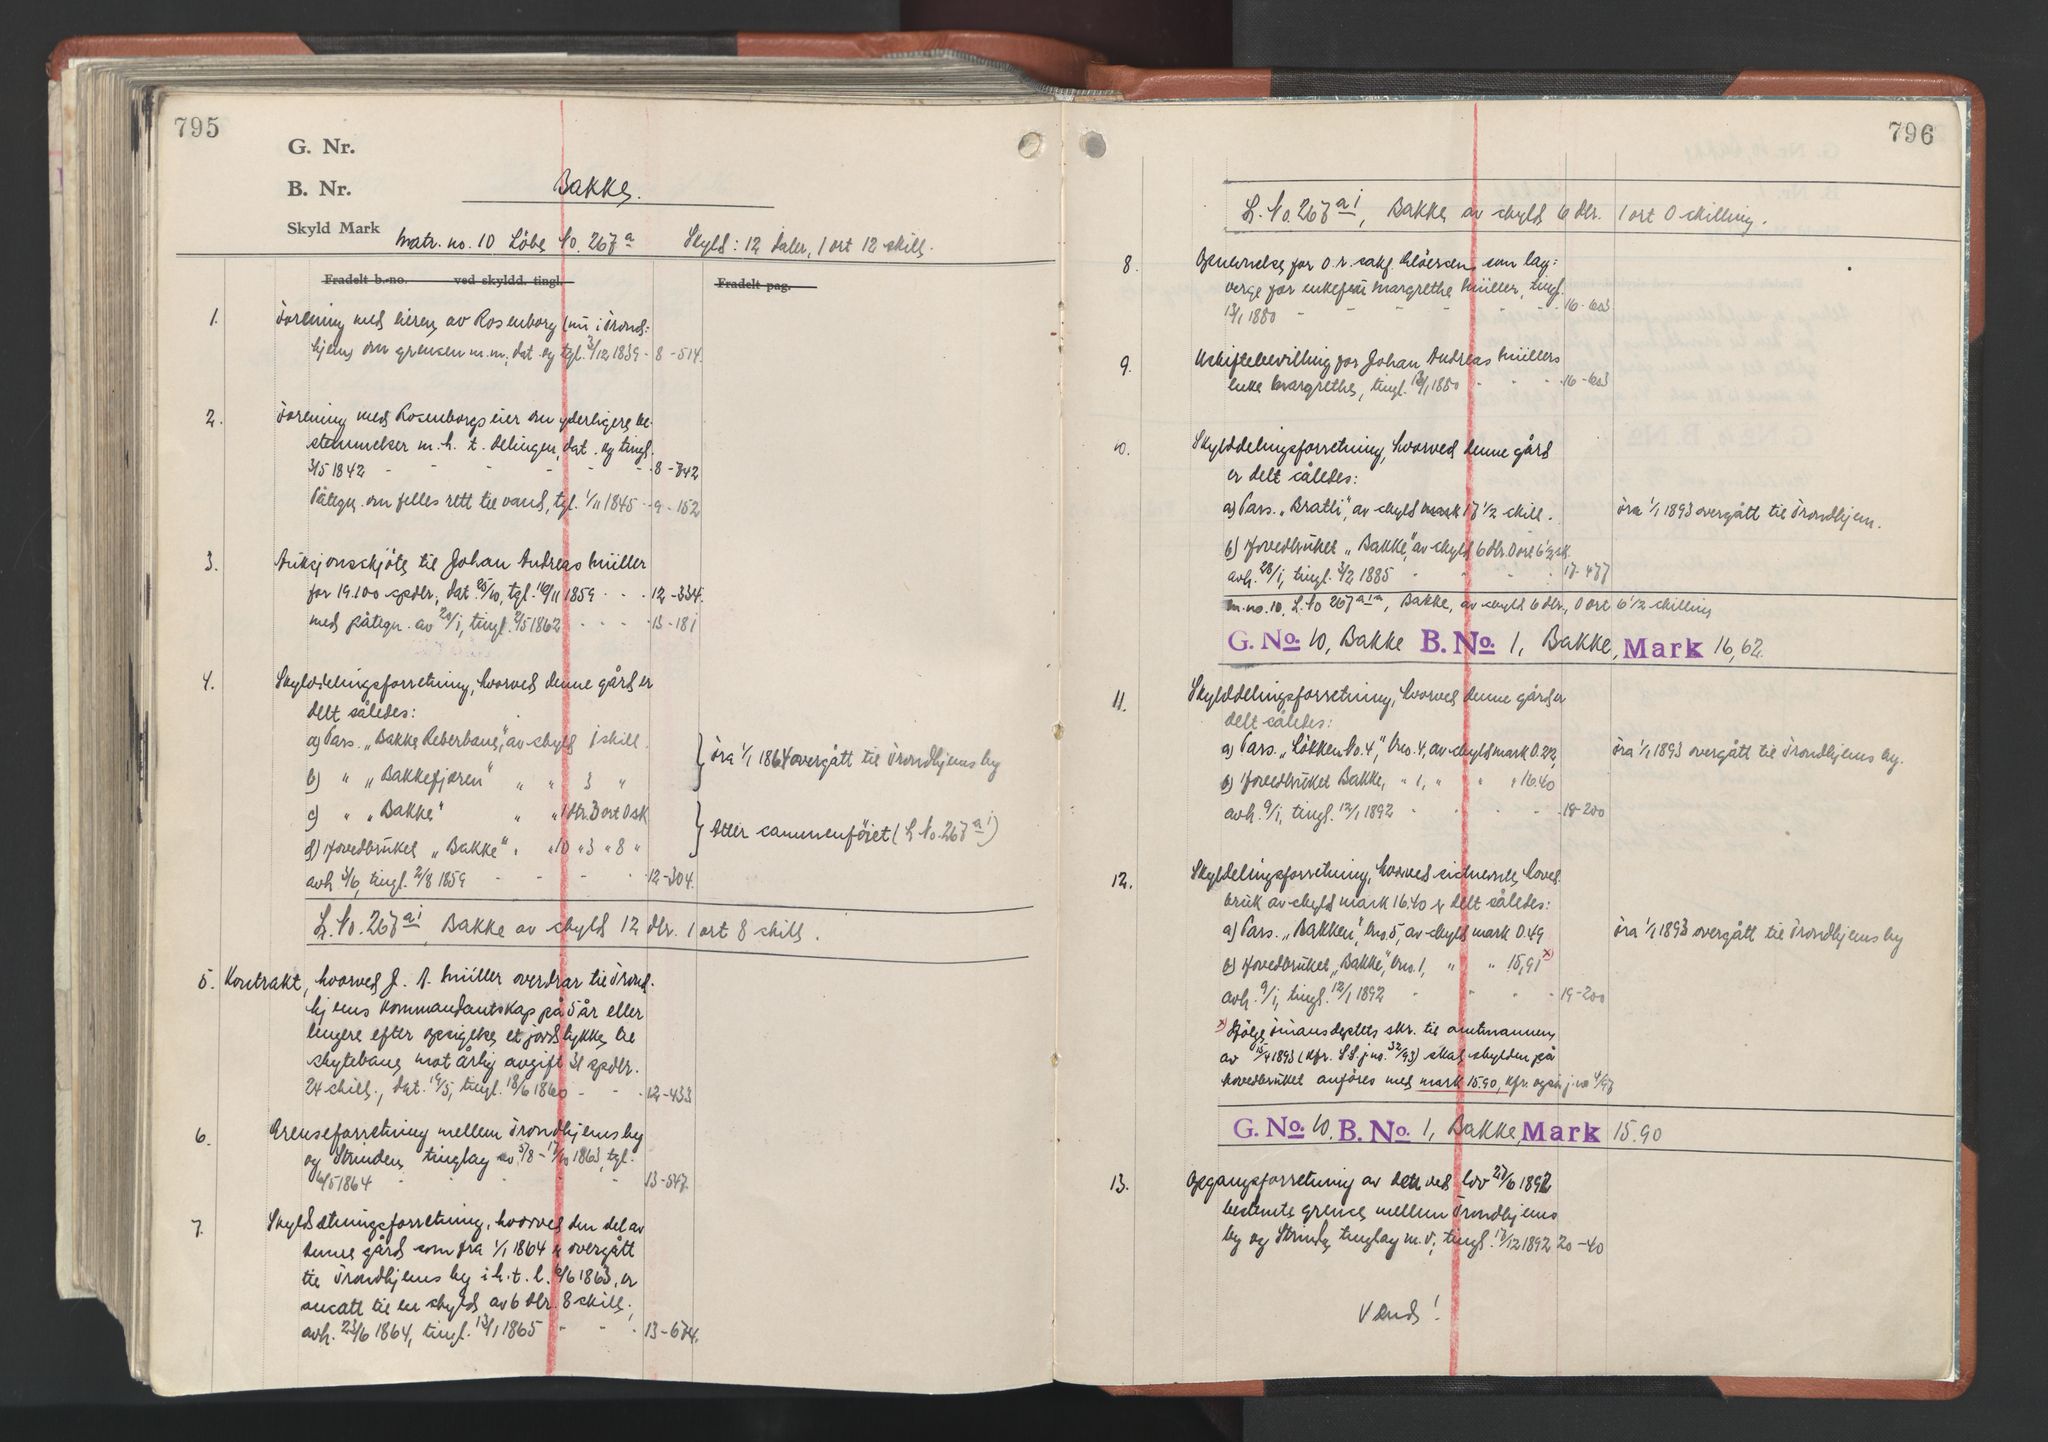 795
G. Nr.
B. Nr. Bakke.
Skyld Mark Matr. no. 10 Löbe No. 267a Skyld: 12 daler, 1 ort 12 skill.
Fradelt b.-no. ved skyldd. tingl. Fradelt pag.
1. Forening med eieren av Rosenborg (nu i Trond-
hjem) om grensen m.m., dat. og tgl. 3/12 1839 - 8-514.
2. Forening med Rosenborgs eier om yderligere be-
stemmelser m.h.t. delingen, dat. og tingl.
3/5 1842 - - - - - - 8-742
Påtegn. om felles rett til vand, tgl. 1/11 1845 - 9-152
3. Auksjonsskjöte til Johan Andreas Müller
for 19.100 spdlr., dat. 25/10, tgl. 16/11 1859 - - - 12-334.
med påtegn. av 20/1, tingl. 2/5 1862 - - - - 13-181
4. Skylddelingsforretning, hvorved denne gård er
delt således:
a) Pars. „Bakke Reberbane", av skyld 1 skill.
b) " „Bakkefjæren" " " 3 " } fra 1/1 1864 overgått til Trondhjems by
c) " „Bakke" " " 1 dlr. 3 ort 0 sk.
d) Hovedbruket „Bakke" " " 10 " 3 " 8 " } Atter sammenföiet (L No. 267 a i)
avh. 3/6, tingl. 2/8 1859 - - - - 12-304.
L. No. 267 a i, Bakke av skyld 12 dlr. 1 ort 8 skill.
5. Kontrakt, hvorved J. A. Müller overdrar til Trond-
hjems Kommandantskap på 5 år eller
lengere efter opsigelse et jordstykke til
skytebane mot årlig avgift 31 spdlr.
24 skill., dat. 19/5, tingl. 18/6 1860 - - - 12-433
6. Grenseforretning mellem Trondhjems by
og Strinden tinglag av 5/8 - 17/10 1863, tgl.
6/5 1864 - - - - - 13-547.
7. Skyldsetningsforretning, hvorved den del av
denne gård som fra 1/1 1864 er overgått
til Trondhjems by i h.t. l. 6/6 1863, er
ansatt til en skyld av 6 dlr. 8 skill.,
avh. 23/6 1864, tingl. 13/1 1865 - - - 13-674.
796
L. No. 267 a i, Bakke av skyld 6 dlr. 1 ort 0 skilling.
8. Opnevnelse for o.r. sakf. som lag-
verge for enkefru Margrethe Müller, tingl.
13/1 1880 - - - - - - 16-603
9. Uskiftebevilling for Johan Andreas Müllers
enke Margrethe, tingl. 13/1 1880 - - - 16-603
10. Skylddelingsforretning, hvorved denne gård
er delt således:
a) Pars. „Bratli", av skyld mark 17 1/2 skill. fra 1/1 1893 overgått til Trondhjem.
b) Hovedbruket „Bakke", av skyld 6 dlr. 0 ort 6 1/2 sk.
avh. 28/1, tingl. 3/2 1885 - - - - 17-477
m. no. 10, L. No 267 a i a, Bakke, av skyld 6 dlr., 0 ort 6 1/2 skilling
G. No. 10, Bakke B. No. 1, Bakke, Mark 16,62.
11. Skylddelingsforretning, hvorved denne gård er
delt således:
a) Pars. „Lökken No. 4", bno. 4, av skyld mark 0.22, fra 1/1 1893 overgått til Trondhjems by.
b) Hovedbruket Bakke, " 1, " " " 16.40
avh. 9/1, tingl. 12/1 1892 - - - - 18-200
12. Skylddelingsforretning, hvorved sistnevnte hoved-
bruk av skyld mark 16.40 er delt således:
a) Pars. „Bakken", bno. 5, av skyld mark 0.49 fra 1/1 1893 overgått til Trondhjems by
b) Hovedbruket „Bakke", bno. 1, " " 15,91 x)
avh. 9/1, tingl. 12/1 1892 - - - - 19-200
x) Ifölge Finansdeptets skr. til amtmannen
av 15/4 1893 (kfr. S.S. j. no. 32/93) skal skylden på
hovedbruket anföres med mark 15.90, kfr. også j. no 4/97
G. No. 10, B. No. 1, Bakke, Mark 15.90
13. Opgangsforretning av den ved lov 27/6 1892
bestemte grense mellem Trondhjems
by og Strinda tinglag m.v., tingl. 13/12 1892 20-40
Vend!